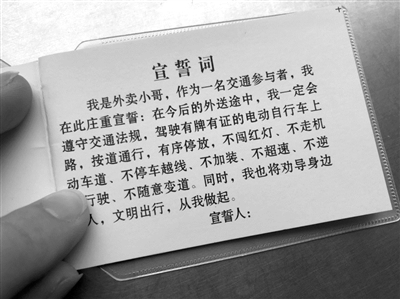 宣誓词
我是外卖小哥，作为一名交通参与者，我
在此庄重宣誓：在今后的外送途中，我一定会
遵守交通法规，驾驶有牌有证的电动自行车上
路，按道通行，有序停放，不闯红灯、不走机
动车道、不停车越线、不加装、不超速、不逆
行驶、不随意变道。同时，我也将劝导身边
人，文明出行，从我做起。
宣誓人：